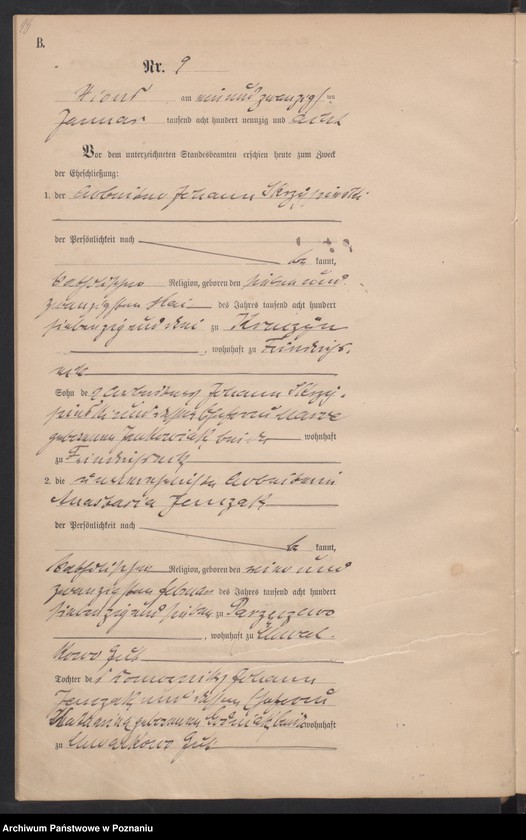 B.
Nr. 9
am neun und zwanzigsten
Januar tausend acht hundert neunzig und acht
Vor dem unterzeichneten Standesbeamten erschien heute zum Zweck
der Eheschließung:
1. der Arbeiter Johann
der Persönlichkeit nach
be kannt,
katholischer Religion, geboren den sieben und
zwanzigsten Mai des Jahres tausend acht hundert
siebenzig und drei zu
, wohnhaft zu Friedrichs-
eck
Sohn des Arbeiters Johann
und dessen Ehefrau
geborenen Jankowiak beide wohnhaft
zu Friedrichseck
2. die unverehelichte Arbeiterin
Anastasia Jenczak
der Persönlichkeit nach
be kannt,
katholischer Religion, geboren den
zwanzigsten Februar des Jahres tausend acht hundert
siebenzig und sieben zu
, wohnhaft zu Chwal-
kowo Gut
Tochter des Komorniks Johann
Jenczak und dessen Ehefrau
Katharina geborenen wohnhaft
zu Chwalkowo Gut
Archiwum Państwowe w Poznaniu